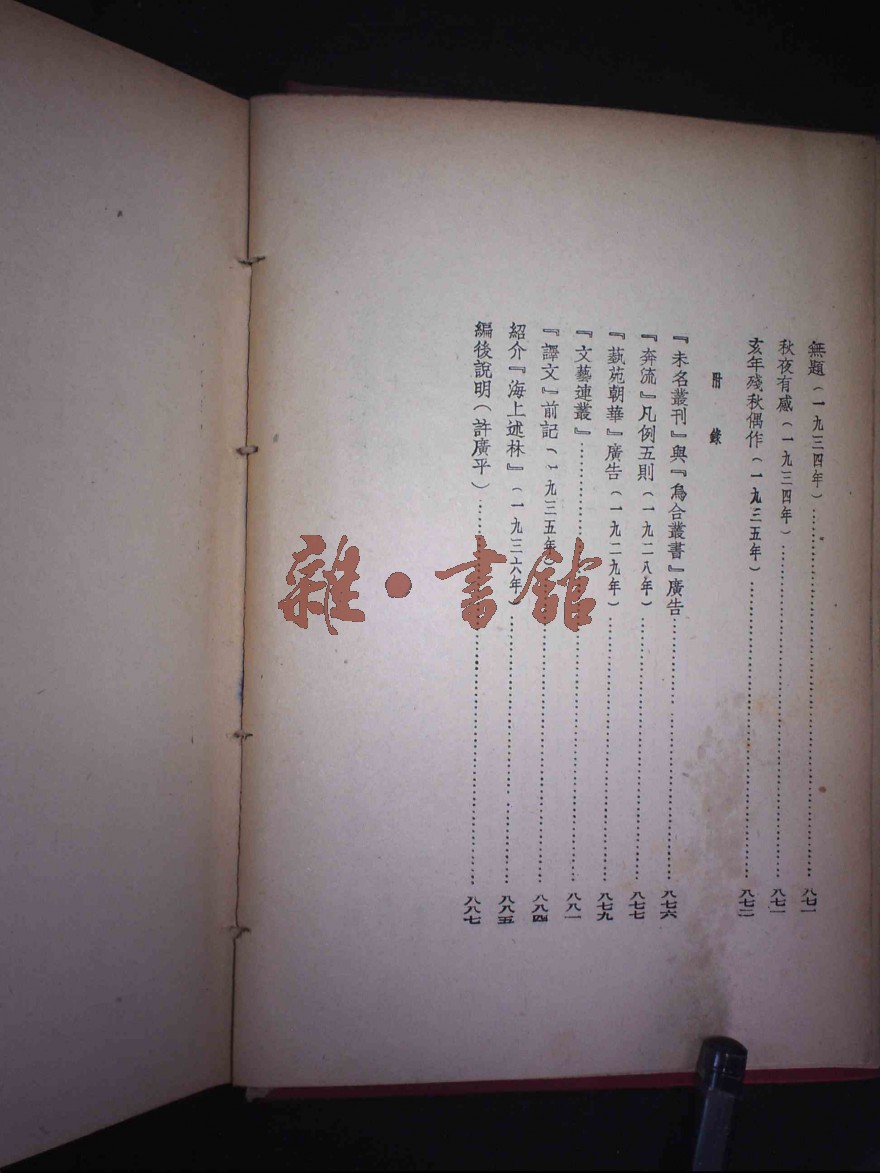 無題(一九三四年)……八七一
秋夜有感(一九三四年)……八七一
亥年殘秋偶作(一九三五年)……八七二
附錄
『未名叢刊』與『烏合叢書』廣告……八七六
『奔流』凡例五則(一九二八年)……八七七
『藝苑朝華』廣告(一九二九年)……八七九
『文藝連叢』……八八一
『譯文』前記(一九三五年)……八八四
紹介『海上述林』(一九三六年)……八八五
編後說明(許廣平)……八八七
雜·書館